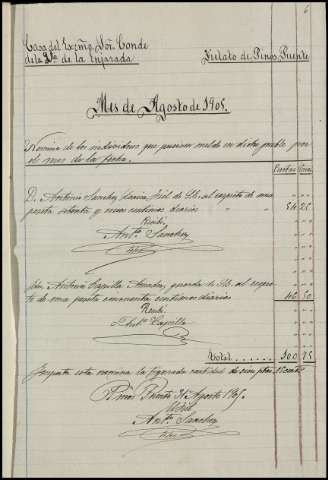 6
Casa del Exmo. Sor. Conde
de la Qta. de la Enjarada
Fielato de Pinos Puente
Mes de Agosto de 1905.
Nómina de los individuos que que gozan sueldo en dicho pueblo por
el mes de la fecha.
Pesetas Cents.
D. Antonio Sanchez Garcia, fiel de Id. al respecto de una
peseta setenta y cinco centimos diarios " " " 54 25
Recibí
Anto. Sanchez
Antonio Capilla guarda de Id. al respec-
to de una peseta cincuenta centimos diarios 46 50
Recibí
Anto. Capilla
Total ...... 100 75
Importa esta nomina la figurada cantidad de cien ptas.
Pinos Puente 31 Agosto 1905.
El fiel
Anto. Sanchez